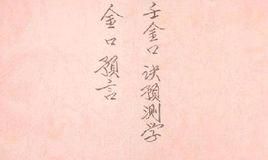 壬金口诀预测学
金口预言